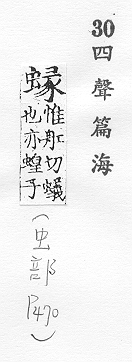 30 四聲篇海
蝝 惟船切蟻
也亦蝗子
(虫部 P470)